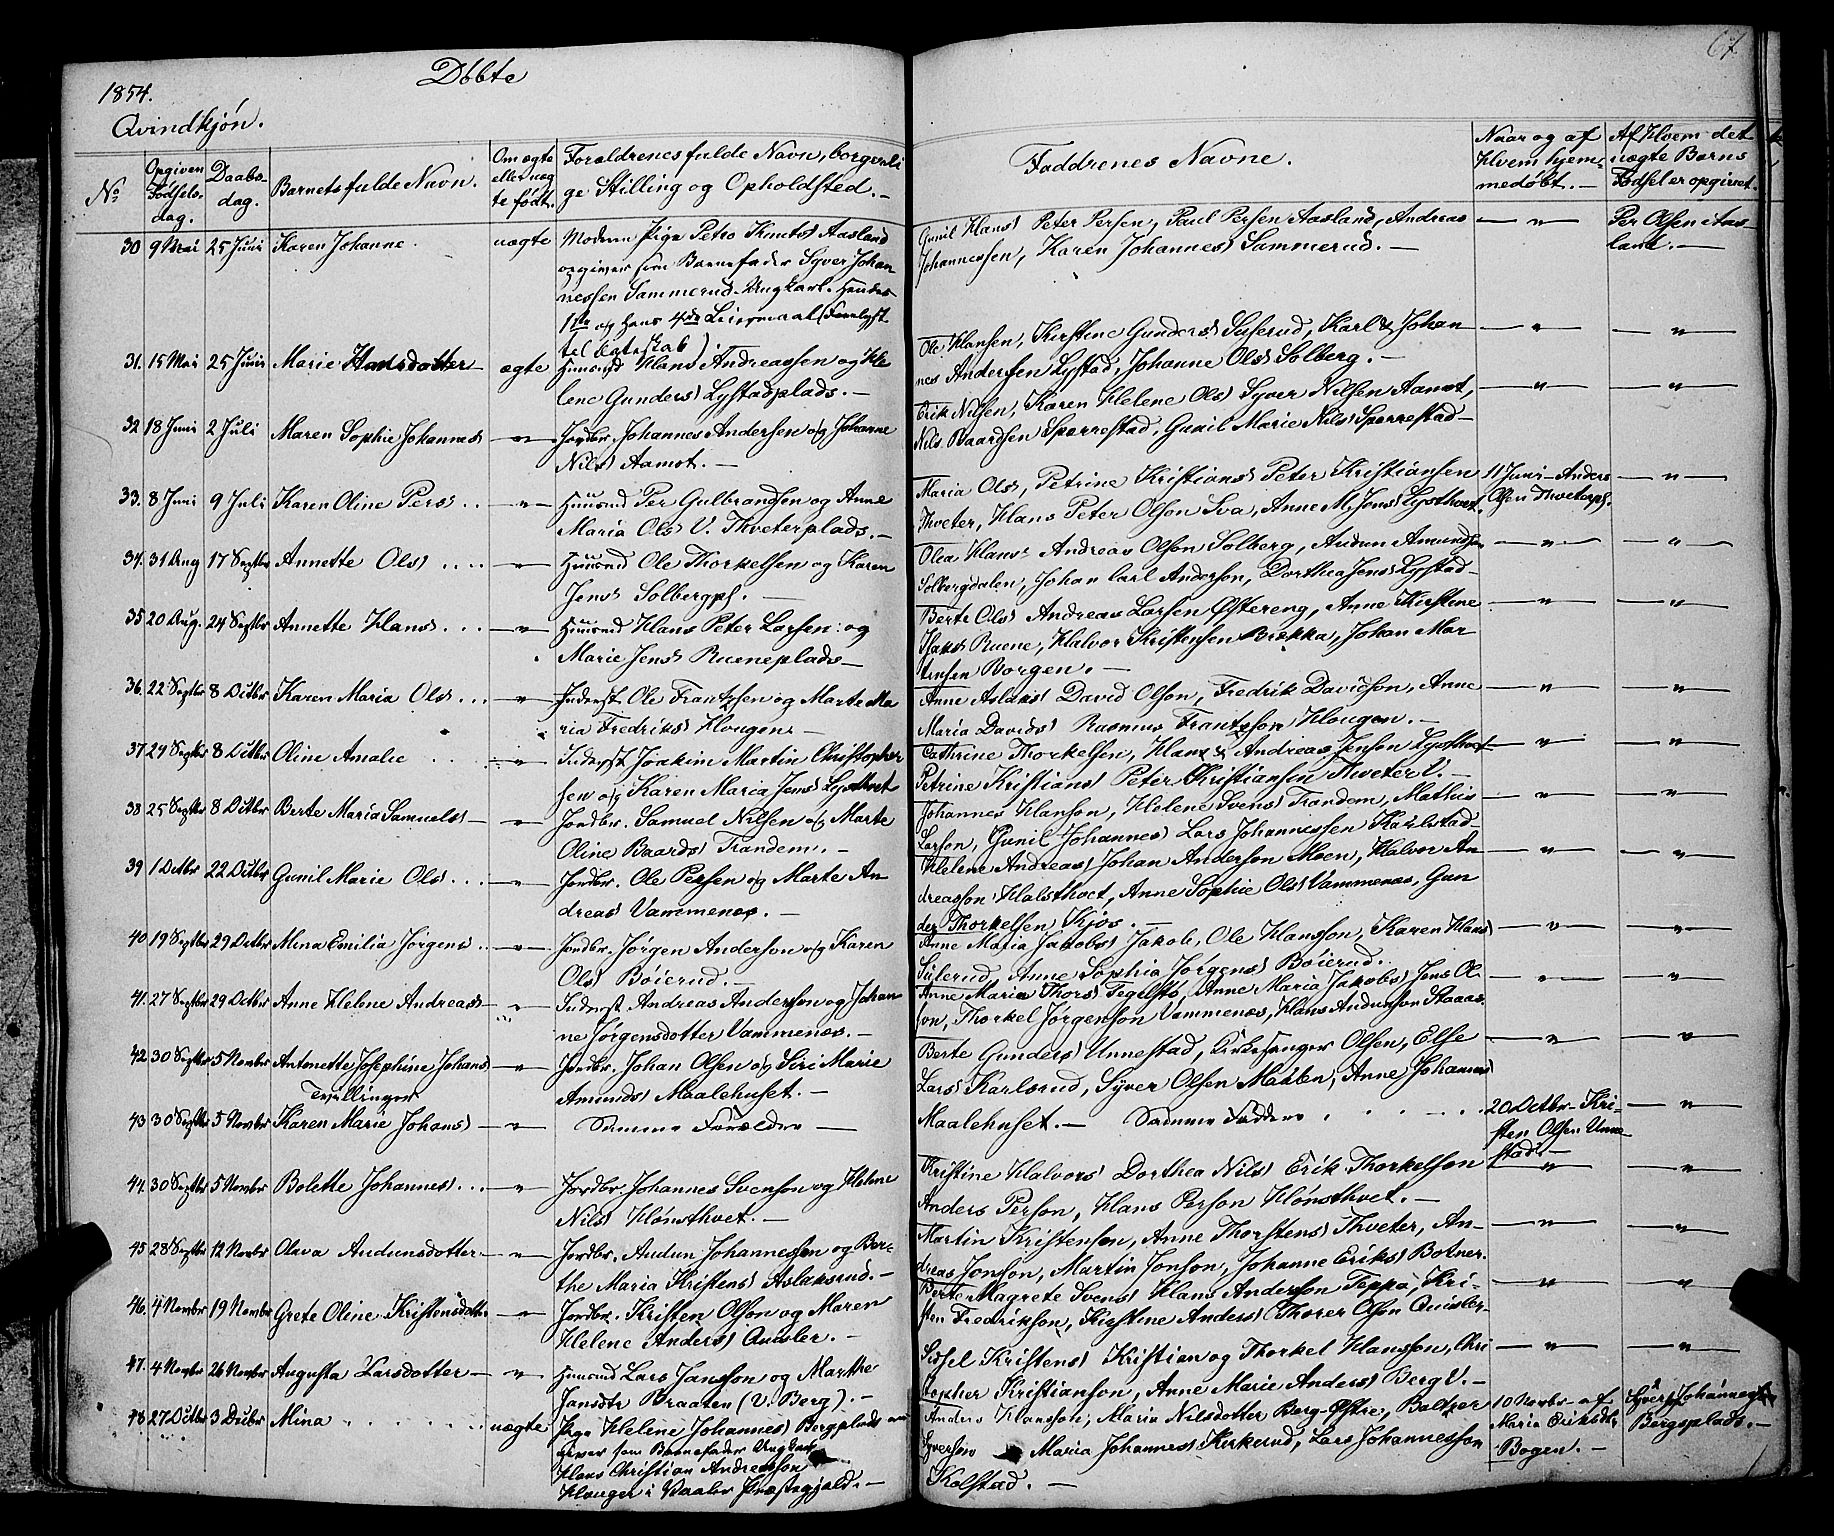 1854.
Döbte
67
Qvindkjön.
No
Opgiven Födsels-dag.
Daabs-dag.
Barnets fulde Navn.
Om ægte eller uæg te födt.
Forældrenes fulde Navn, borgerli
ge Stilling og Opholdsted. -
Faddrenes Navne.
Naar og af
Hvem hjem-
medöbt. -
Af Hvem det
uægte Barns
Födsel er opgivet.
30 9 Mai 25 Juni Karen Johanne. uægte Moderen Pige Petro Knuts Aasland
opgiver som Barnefader Syver Johan
nessen Sammerud - Ungkarl. Hendes
1ste og hans 4de Leiermaal (Forlyst
til Ægteskab).
Gunil Hans Peter Persen, Paul Persen Aasland, Andreas
Johannessen, Karen Johannes Sammerud. -
Per Olsen i Aas-
land. -
31. 15 Mai 25 Juni Marie Hansdotter - ægte Huusmd Hans Andreassen og He
lene Gunders Lystadplads. -
Ole Hansen, Kirstine Gunders Suserud, Karl & Johan
nes Andersen Lystad, Johanne Ols Solberg. -
32 18 Juni 2 Juli Maren Sophie Johannes - " - Jordbr. Johannes Andersen og Johanne
Nils Aamot. -
Erik Nilsen, Karen Helene Ols Syver Nilsen Aamot,
Nils Baardsen Sparrestad, Gunil Marie Nils Sparrestad -
33. 8 Juni 9 Juli Karen Oline Pers .. - " - Huusmd Per Gulbrandsen og Anne
Maria Ols V. Thveterplads. -
Maria Ols, Petrine Kristians Peter Kristiansen
Thveter, Hans Peter Olson Sva, Anne M. Jens Lysthvet.
11 Juni - Anders
Olsen Thveterpl.
34. 31 Aug 17 Septbr Annette Ols .... - " - Huusmd Ole Thorkelsen og Karen
Jens Solbergpl. -
Olea Hans Andreas Olson Solberg, Audun Amundsen
Solbergdalen, Johan Carl Anderson, Dorthea Jens Lystad -
35 20 Aug. 24 Septbr Annette Hans ... - " - Huusmd Hans Peter Larsen og
Marie Jens Rueneplads -
Berte Ols Andreas Larsen Östereng, Anne Kirstine
Isaks Ruene, Halvor Kristensen Brekka, Johan Mar
tinsen Borgen. -
36. 22 Septbr 8 Octbr Karen Maria Ols ... - " - Inderst Ole Frantzsen og Marte Ma
ria Fredriks Hougen -
Anne Aslaks David Olson, Fredrik Davidson, Anne
Maria Davids Rasmus Frantzson Hougen. -
37. 24 Septbr 8 Octbr Oline Amalie .. - " - Inderst Joakim Martin Christopher
sen og Karen Maria Jens Lysthvet
Cathrine Thorkelsen, Hans & Andreas Jenson Lysthvet -
Petrine Kristians Peter Kristiansen Thveter V. -
38 25 Septbr 8 Octbr Berte Maria Samuels - " - Jordbr. Samuel Nilsen og Marte
Oline Baards Trandem. -
Johannes Hanson, Helene Svens Trandem, Mathis
Larson, Gunil Johannes Lars Johannessen Karlstad -
39 1 Octbr 22 Octbr Gunil Marie Ols ... - " - Jordbr. Ole Persen og Marte An
dreas Vammenæs. -
Helene Andreas Johan Anderson Moen, Halvor An
dreasson Halsthvet, Anne Sophie Ols Vammenæs, Gun
der Thorkelsen Kjos. -
40 19 Septbr 29 Octbr Mina Emilia Jörgens .. - " - Jordbr. Jörgen Anderson og Karen
Ols Böierud. -
Anne Maria Jakobs Jakob, Ole Hansson, Karen Hans
Sulerud, Anne Sophia Jörgens Böierud.
41. 27 Septbr 29 Octbr Anne Helene Andreas - " - Inderst Andreas Andersson og Johan
ne Jörgensdotter Vammenæs. -
Anne Maria Thors Teglstö, Anne Maria Jakobs Jens Ol
son, Thorkel Jörgenson Vammenæs, Hans Andersson Staaas.
42. 30 Septbr 5 Novbr Antonette Josephine Johans - " - Jordbr. Johan Olsen og Siri Marie
Amunds Maalehuset. -
Tvillinger
Berte Gunders Unnestad, Kirkesanger Olsen, Else
Lars Karlsrud, Syver Olsen Maalen, Anne Johannes
Maalehuset. - Samme Faddere
43 30 Septbr 5 Novbr Karen Marie Johans - " - Samme Forældre -
20 Octbr - Kri-
sten Olsen Unne-
stad. -
44. 30 Septbr 5 Novbr Bolette Johannes ... - " - Jordbr. Johannes Svenson og Helene
Nils Hönsthvet. -
Kristine Halvors Dorthea Nils Erik Thorkelson
Anders Person, Hans Person Hönsthvet. -
45 28 Septbr 12 Novbr Olava Audunsdotter - " - Jordbr. Audun Johannesson og Ber-
the Maria Kristens Aslaksrud. -
Martin Kristenson, Anne Thorstens Thveter, An-
dreas Jonson, Martin Jonson, Johanne Eriks Botner.
46. 4 Novbr 19 Novbr Grete Oline Kristensdotter - " - Jordbr. Kristen Olson og Maren
Helene Anders Quisler. -
Berte Magrete Svens Hans Anderson Teppa, Kri-
sten Fredrikson, Kirstine Anders Thorer Olson Quisler -
47. 4 Novbr 26 Novbr Augusta Larsdotter - " - Huusmd Lars Jansson og Marthe
Jansdtr Braaten (V. Berg). -
Sidsel Kristens Kristian og Thorkel Hansson, Chri
stopher Kristianson, Anne Marie Anders Berg V. -
48 27 Octbr 3 Decbr Mina uægte Pige Helene Johannes Bergplads an
giver som Barnefader Ungkarl
Hans Christian Andreasson
Houger i Vaaler Præstegjeld. -
Anders Hansson, Maria Nilsdotter Berg Östre, Baltzer
Syverson Maria Johannes Kirkerud, Lars Johannesson
Kolstad. -
10 Novbr - af
Maria Eriksdtr
Bogen. -
Syver Johannessen
Bergsplads. -